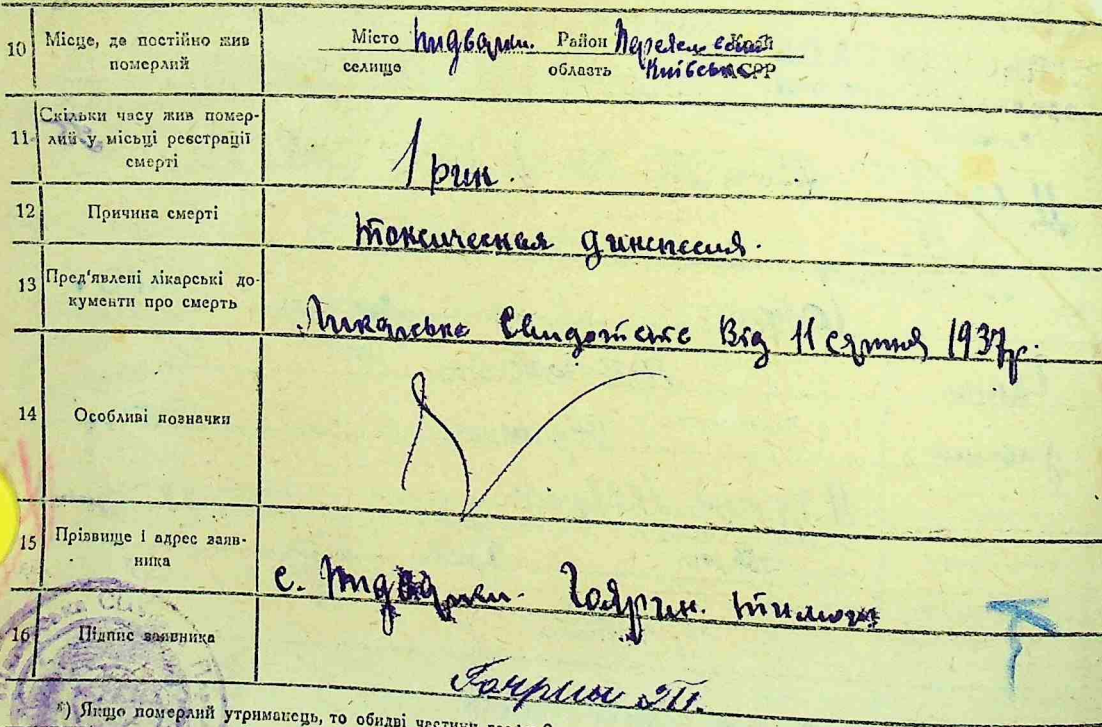 10 Місце, де постійно жив Місто Підварки. Район Переяславськ Край
померлий селище область Київська СРР
11 Скільки часу жив помер-
лий у місці реєстрації
смерті
1 рик.
12 Причина смерті
токсическая диспепсия.
13 Пред'явлені лікарські до-
кументи про смерть
Ликарське Свидотство Від 11 серпня 1937р.
14 Особливі позначки
15 Прізвище і адрес заяв-
ника
с. Підварки. Гоярин. Тимош
16 Підпис заявника
Гоярин Т.
*) Якщо померлий утриманець, то обидві частини